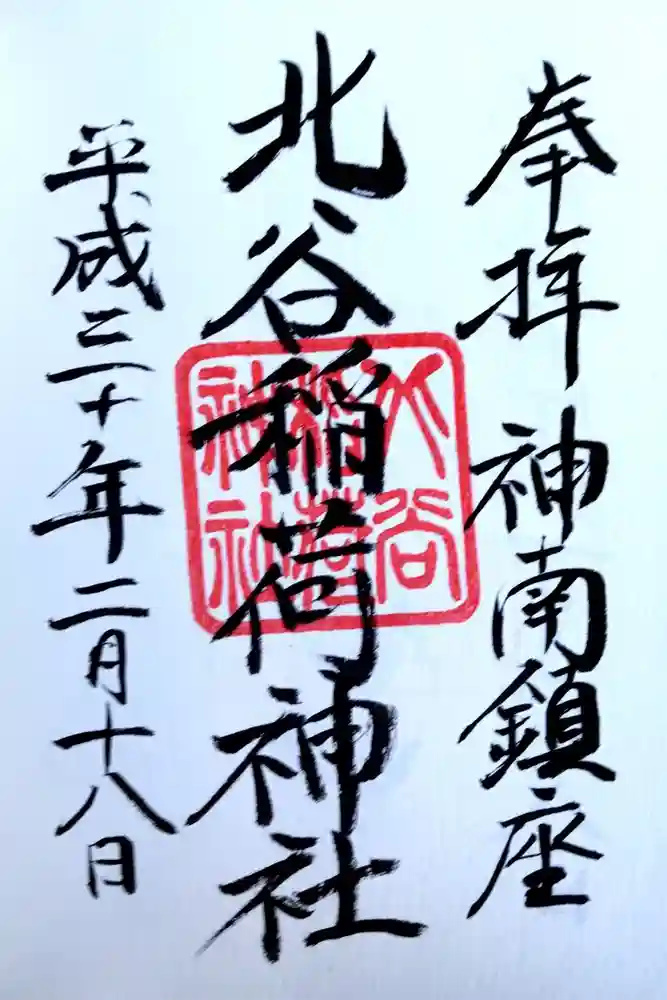 奉拝 神南鎮座
北谷稲荷神社
北谷
稲荷
神社
平成三十年二月十八日